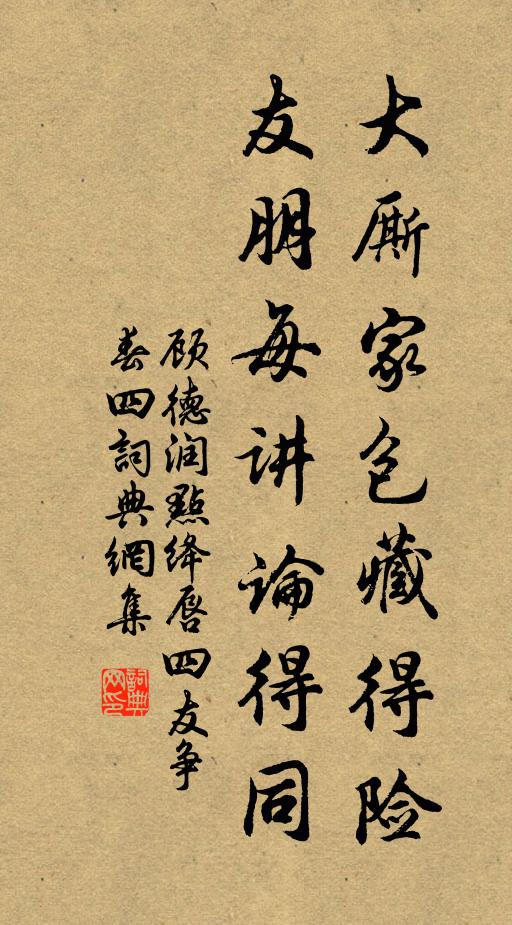 大厮家包藏得险
友朋每讲论得同
顾德润點绛唇四友争
春四詞典網集
詞典
网印